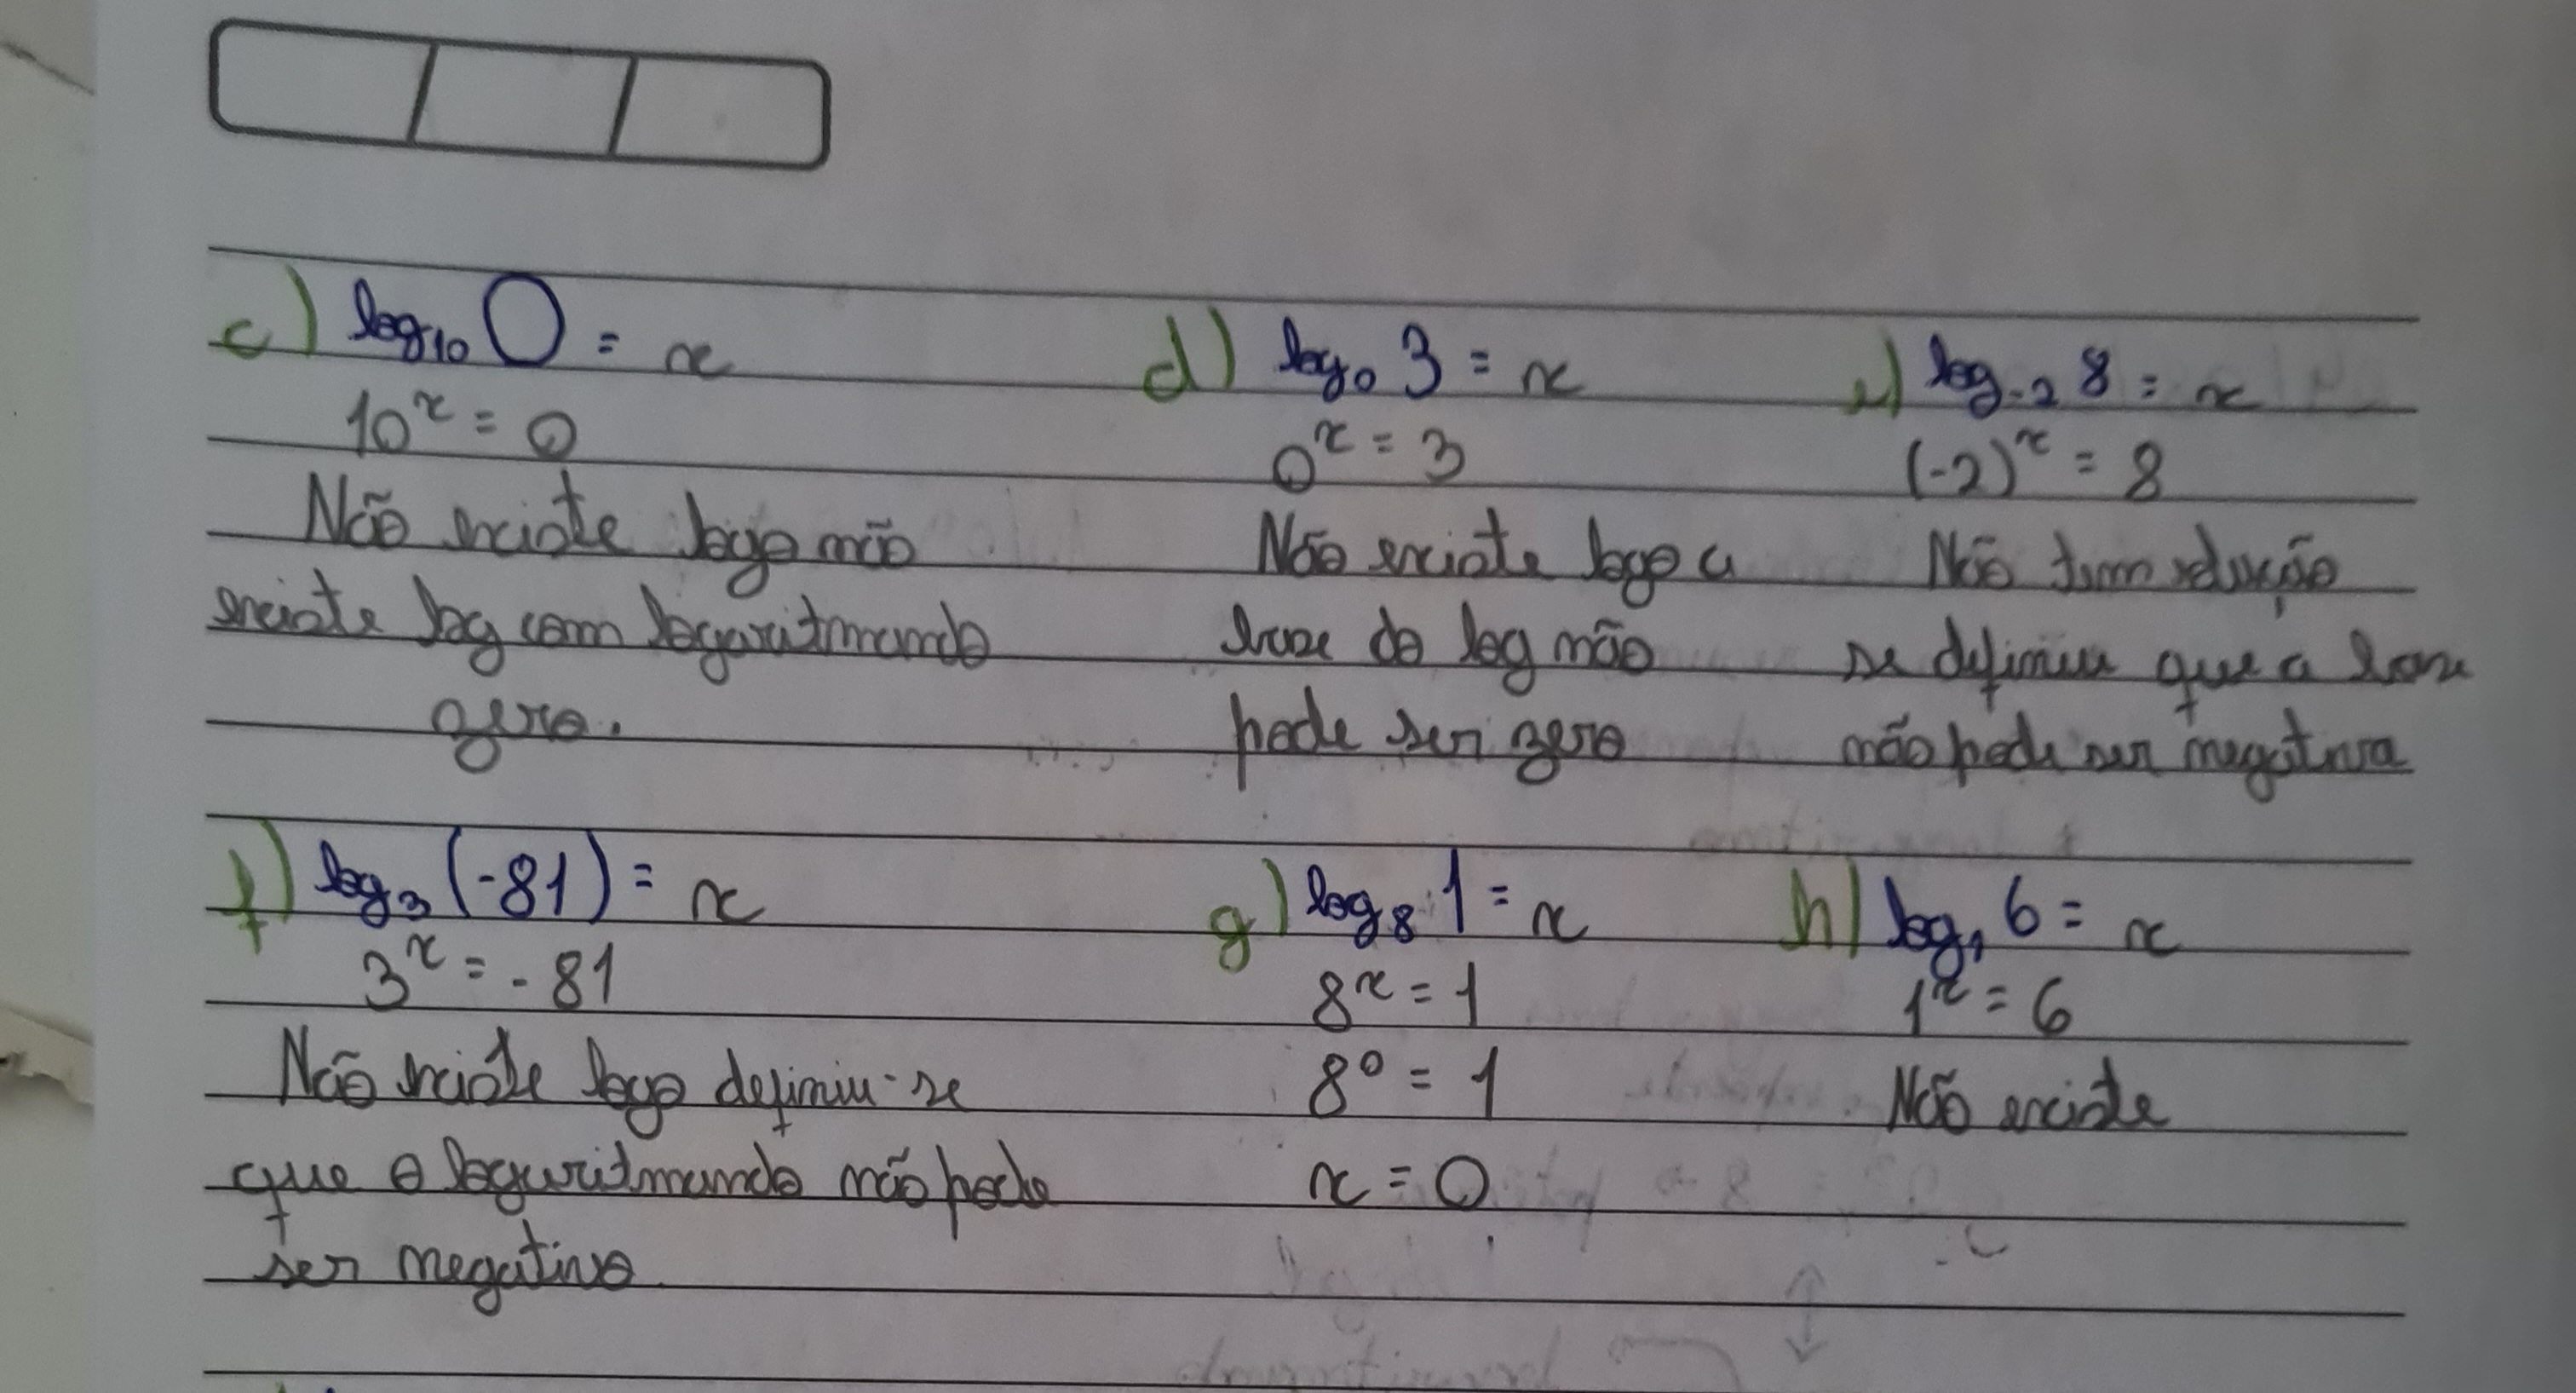 c) log₁₀ 0 = x
10ˣ = 0
Não existe logo não
existe log com logaritmando
zero.
d) log₀ 3 = x
0ˣ = 3
Não existe logo a
base do log não
pode ser zero
e) log₋₂ 8 = x
(-2)ˣ = 8
Não tem solução
se definiu que a base
não pode ser negativa
f) log₃ (-81) = x
3ˣ = - 81
Não existe logo definiu-se
que o logaritmando não pode
ser negativo
g) log₈ 1 = x
8ˣ = 1
8⁰ = 1
x = 0
h) log₁ 6 = x
1ˣ = 6
Não existe